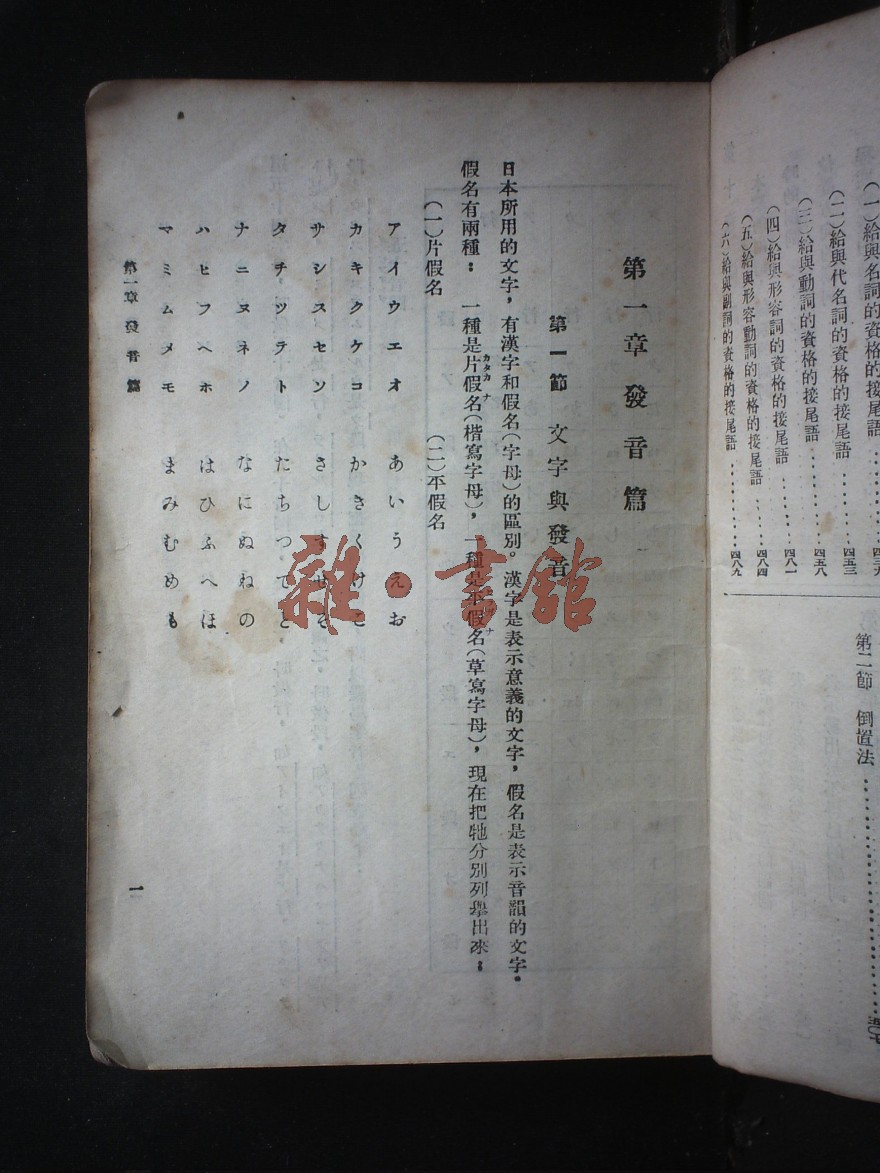 (一)給與名詞的資格的接尾語
(二)給與代名詞的資格的接尾語………四五三
(三)給與動詞的資格的接尾語………四五八
(四)給與形容詞的資格的接尾語………四八一
(五)給與形容動詞的資格的接尾語………四八四
(六)給與副詞的資格的接尾語………四八九
第二節 倒置法
第一章 發音篇
第一節 文字與發音
日本所用的文字，有漢字和假名(字母)的區別。漢字是表示意義的文字，假名是表示音韻的文字。
假名有兩種：一種是片假名(楷寫字母)，一種是平假名(草寫字母)，現在把牠分別列舉出來：
カタカナ
(一)片假名 (二)平假名
アイウエオ あいうえお
カキクケコ かきくけこ
サシスセソ さしすせそ
タチツテト たちつてと
ナニヌネノ なにぬねの
ハヒフヘホ はひふへほ
マミムメモ まみむめも
第一章 發音篇
一
雜·書館